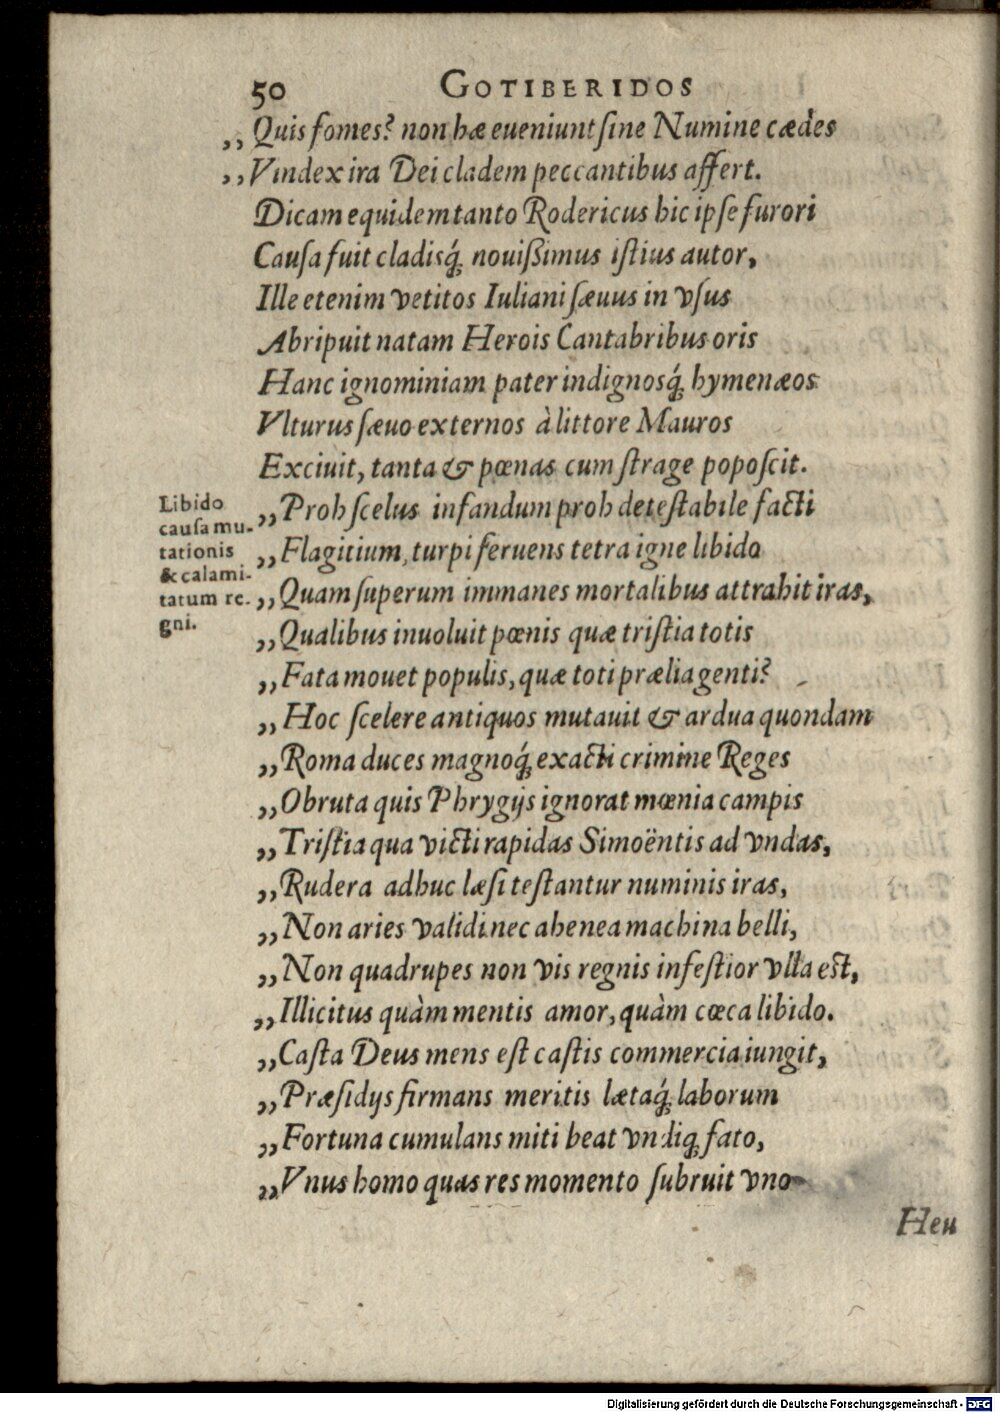 50 GOTIBERIDOS
,, Quis fomes? non hæ eueniunt ſine Numine cædes
,, Vindex ira Dei cladem peccantibus affert.
Dicam equidem tanto Rodericus hic ipſe furori
Cauſa fuit cladisq́; nouißimus iſtius autor,
Ille etenim vetitos Iuliani ſæuus in vſus
Abripuit natam Herois Cantabribus oris
Hanc ignominiam pater indignosq́; hymenæos
Vlturus ſæuo externos à littore Mauros
Exciuit, tanta & pœnas cum ſtrage popoſcit.
Libido
cauſa mu-
tationis
& calami-
tatum re-
gni.
,, Proh ſcelus infandum proh deteſtabile facti
,, Flagitium, turpi feruens tetra igne libido
,, Quam ſuperum immanes mortalibus attrahit iras,
,, Qualibus inuoluit pœnis quæ triſtia totis
,, Fata mouet populis, quæ toti prælia genti?
,, Hoc ſcelere antiquos mutauit & ardua quondam
,, Roma duces magnoq́; exacti crimine Reges
,, Obruta quis Phrygijs ignorat mœnia campis
,, Triſtia qua victi rapidas Simoëntis ad vndas,
,, Rudera adhuc læſi teſtantur numinis iras,
,, Non aries validi nec ahenea machina belli,
,, Non quadrupes non vis regnis infeſtior vlla eſt,
,, Illicitus quàm mentis amor, quàm cœca libido.
,, Caſta Deus mens eſt caſtis commercia iungit,
,, Præſidijs firmans meritis lætaq́; laborum
,, Fortuna cumulans miti beat vndiq; fato,
,, Vnus homo quas res momento ſubruit vno
Heu
Digitalisierung gefördert durch die Deutsche Forschungsgemeinschaft - DFG